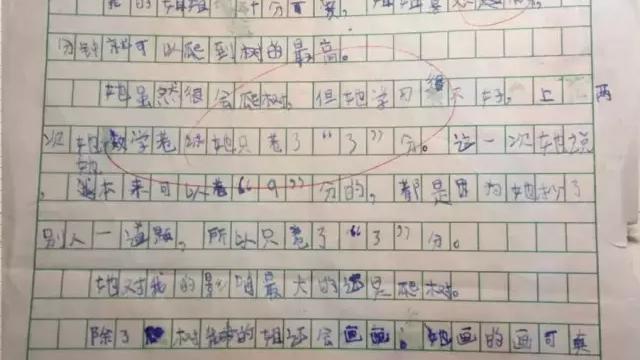 我的姐姐十分可爱,姐姐喜
分钟就可以爬到树的最高。
她虽然很会爬树,但她学习很不好,上两
次她数学卷她只考了“了”分。这一次她说
她本来可以考“9”分的,都是因为她抄了
别人一道题,所以只考了“了”分。
她对我的影响最大的还是爬树。
除了树的姐还会画画,她画的画可真